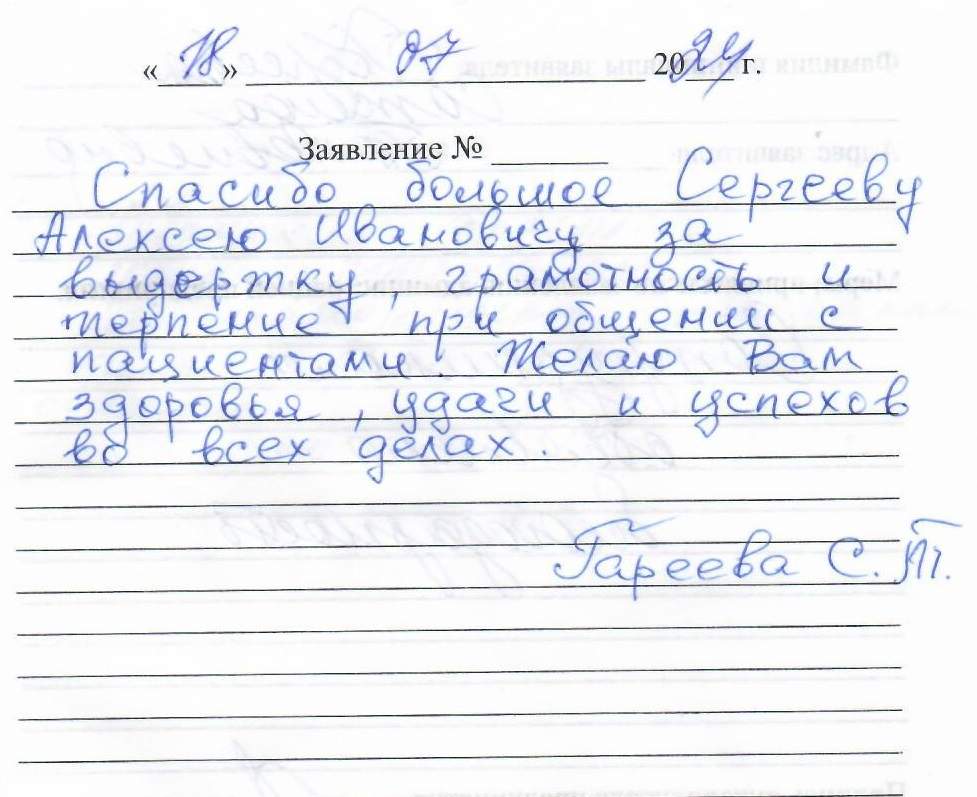 «18» 07 2024 г.
Заявление №
Спасибо большое Сергееву
Алексею Ивановичу за
выдержку, грамотность и
терпение при общении с
пациентами. Желаю Вам
здоровья, удачи и успехов
во всех делах.
Гареева С.Т.